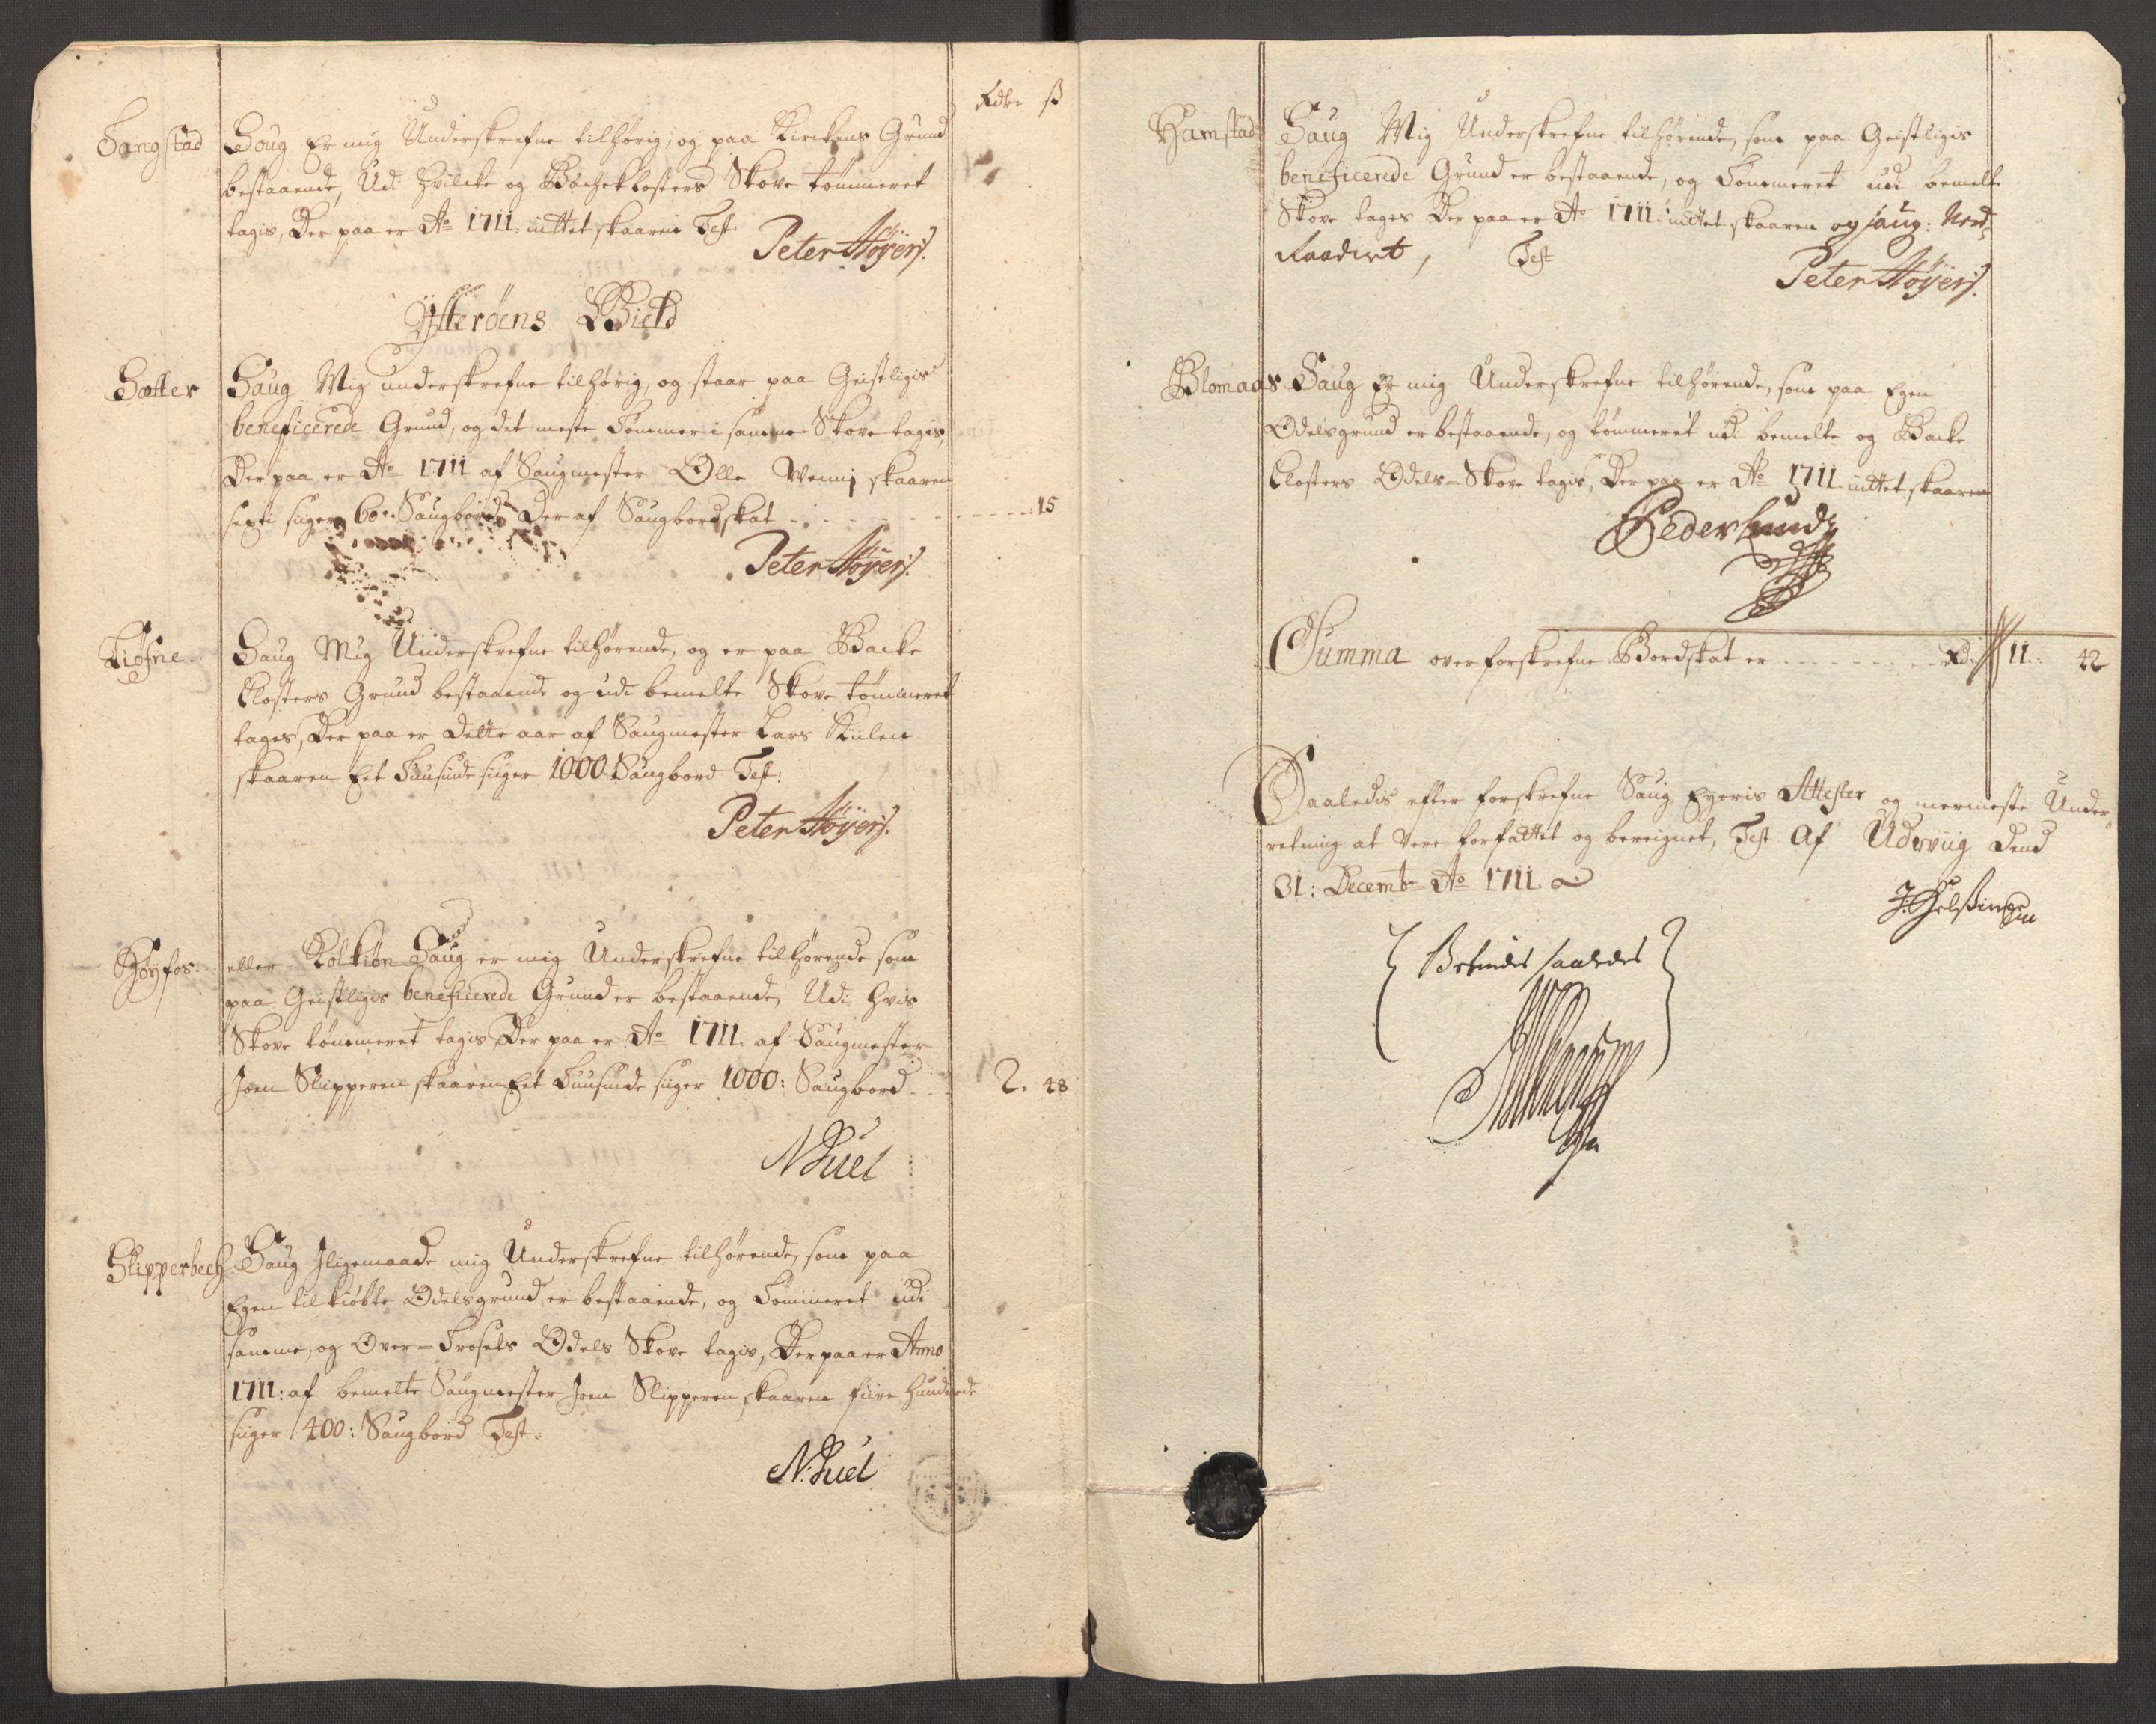 Rdlr ß
Sangstad Saug Er mig Underskrefne tilhørig, og paa Kirckens Grund
bestaaende, Udi hvilcke og Bacheklosters Skove tømmeret
tagis, Der paa er Ao 1711 intet skaaren Test.
Peter Høyers.
Ytterøens Gield
Sætter Saug Mig underskrefne tilhørig, og staar paa Geistligis
beneficerede Grund, og det meste Tømmer i samme Skove tagis,
Der paa er Ao 1711 af Saugmester Olle skaaren
sexti siger 60. Saugbord Der af Saugbordskat - - - 15
Peter Høyers.
Saug Mig Underskrefne tilhørende, og er paa Backe
Closters Grund bestaaende og udi bemelte Skove tømmeret
tages, Der paa er Dette aar af Saugmester Lars
skaaren Eet Tuusinde siger 1000 Saugbord Test:
Peter Høyers.
Høyfos eller Saug er mig Underskrefne tilhørende som
paa Geistligis beneficerede Grund er bestaaende, Udi hvis
Skove tømmeret tagis, Der paa er Ao 1711. af Saugmester
Joen Slipperen skaaren Eet Tuusinde siger 1000: Saugbord - - 2. 48
N Juel
Slipperbech Saug Iligemaade mig Underskrefne tilhørende, som paa
Egen tilkiøbte Odelsgrund er bestaaende, og Tømmeret udi
samme, og Over= Odels Skove tagis, Der paa er Anno
1711: af bemelte Saugmester Joen Slipperen skaaren fiire hundrede
siger 400: Saugbord Test.
N. Juel
Hamstad Saug Mig Underskrefne tilhørende, som paa Geistligis
beneficerede Grund er bestaaende, og Tømmeret udi bemelte
Skove tages Der paa er Ao 1711. intet skaaren og saug:
Test
Peter Høyers.
Blomaas Saug Er mig Underskrefne tilhørende, som paa Egen
Odelsgrund er bestaaende, og tømmeret udi bemelte og Backe
Closters Odels=Skove tagis, Der paa er Ao 1711 intet skaaren
Peder Lund
Summa over forskrefne Bordskat er - - - Rd 11. 42
Saaledis efter forskrefne Saug Eyeris Attester og nermeste Under,,
retning at vere forfattet og bereignet, Test Af Udviig Dend
31: Decembr Ao 1711
Befindes saaledes